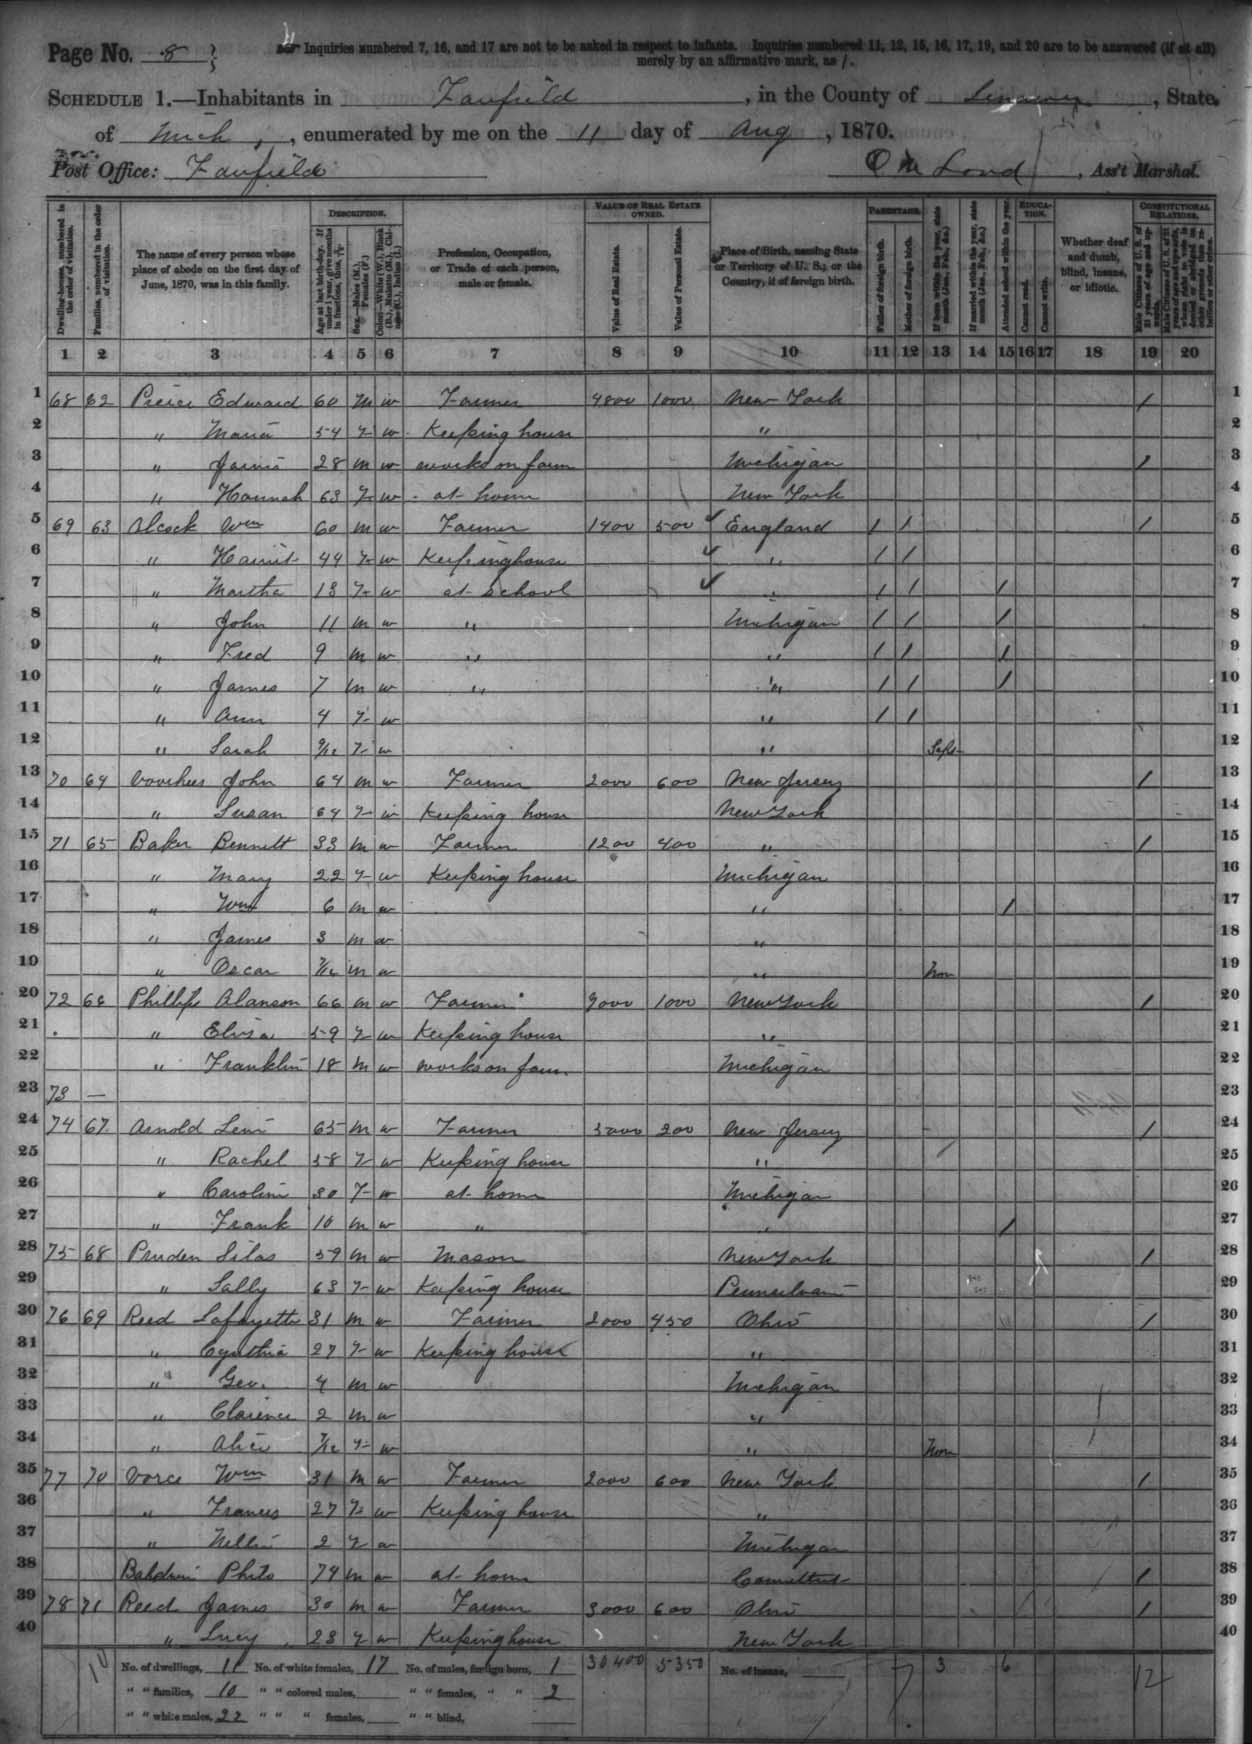 Page No. 8
Inquiries numbered 7, 16, and 17 are not to be asked in respect to infants. Inquiries numbered 11, 12, 15, 16, 17, 19, and 20 are to be answered (if at all)
merely by an affirmative mark, as /.
SCHEDULE 1.—Inhabitants in Fairfield, in the County of Lenawee, State
of Mich, enumerated by me on the 11 day of Aug, 1870.
Post Office: Fairfield
Lord, Ass't Marshal.
DESCRIPTION. VALUE OF REAL ESTATE OWNED. PARENTAGE. EDUCATION. CONSTITUTIONAL RELATIONS.
Dwelling-houses, numbered in the order of visitation.
Families, numbered in the order of visitation.
The name of every person whose place of abode on the first day of June, 1870, was in this family.
Age at last birth-day. If under 1 year, give months in fractions, thus, 3/12
Sex.—Males (M.), Females (F.)
Color.—White (W.), Black (B.), Mulatto (M.), Chinese (C.), Indian (I.)
Profession, Occupation, or Trade of each person, male or female.
Value of Real Estate.
Value of Personal Estate.
Place of Birth, naming State or Territory of U. S.; or the Country, if of foreign birth.
Father of foreign birth.
Mother of foreign birth.
If born within the year, state month (Jan., Feb., &c.)
If married within the year, state month (Jan., Feb., &c.)
Attended school within the year.
Cannot read.
Cannot write.
Whether deaf and dumb, blind, insane, or idiotic.
Male Citizens of U. S. of 21 years of age and upwards.
1 2 3 4 5 6 7 8 9 10 11 12 13 14 15 16 17 18 19 20
1 68 62 Pierce Edward 60 M W Farmer 4800 1000 New York / 1
2 " Maria 54 F W Keeping house " 2
3 " Jarvis 28 M W works on farm Michigan / 3
4 " Hannah 63 F W at home New York 4
5 69 63 Alcock Wm 60 M W Farmer 1400 500 England / / / 5
6 " Harriet 44 F W Keeping house " / / 6
7 " Martha 13 F W at School " / / / 7
8 " John 11 M W " Michigan / / / 8
9 " Fred 9 M W " " / / / 9
10 " James 7 M W " " / / / 10
11 " Ann 4 F W " / / 11
12 " Sarah 9/12 F W " Sept 12
13 70 64 Voorhees John 64 M W Farmer 2000 600 New Jersey / 13
14 " Susan 64 F W Keeping house New York 14
15 71 65 Baker Bennett 33 M W Farmer 1200 400 " / 15
16 " Mary 22 F W Keeping house Michigan 16
17 " Wm 6 M W " / 17
18 " James 3 M W " 18
19 " Oscar 7/12 M W " Nov 19
20 72 66 Phillips Alanson 66 M W Farmer 9000 1000 New York / 20
21 " Eliza 59 F W Keeping house " 21
22 " Franklin 18 M W works on farm Michigan 22
23 73 — 23
24 74 67 Arnold Levi 65 M W Farmer 3000 200 New Jersey / 24
25 " Rachel 58 F W Keeping house " 25
26 " Caroline 30 F W at home Michigan 26
27 " Frank 10 M W " " / 27
28 75 68 Pruden Silas 59 M W Mason New York / 28
29 " Sally 63 F W Keeping house 29
30 76 69 Reed Lafayette 31 M W Farmer 2000 450 Ohio / 30
31 " Cynthia 27 F W Keeping house " 31
32 " Geo. 4 M W Michigan 32
33 " Clarence 2 M W " 33
34 " Alice 7/12 F W " Nov 34
35 77 70 Vorce Wm 31 M W Farmer 2000 600 New York / 35
36 " Frances 27 F W Keeping house " 36
37 " Nellie 2 F W Michigan 37
38 Baldwin Philo 74 M W at home / 38
39 78 71 Reed James 30 M W Farmer 3000 600 Ohio / 39
40 " Lucy 23 F W Keeping house New York 40
No. of dwellings, 11 No. of white females, 17 No. of males, foreign born, 1 30400 5350 No. of insane, 3 6 12
" " families, 10 " " colored males, " " females, " " 2
" " white males, 22 " " " females, " " blind,